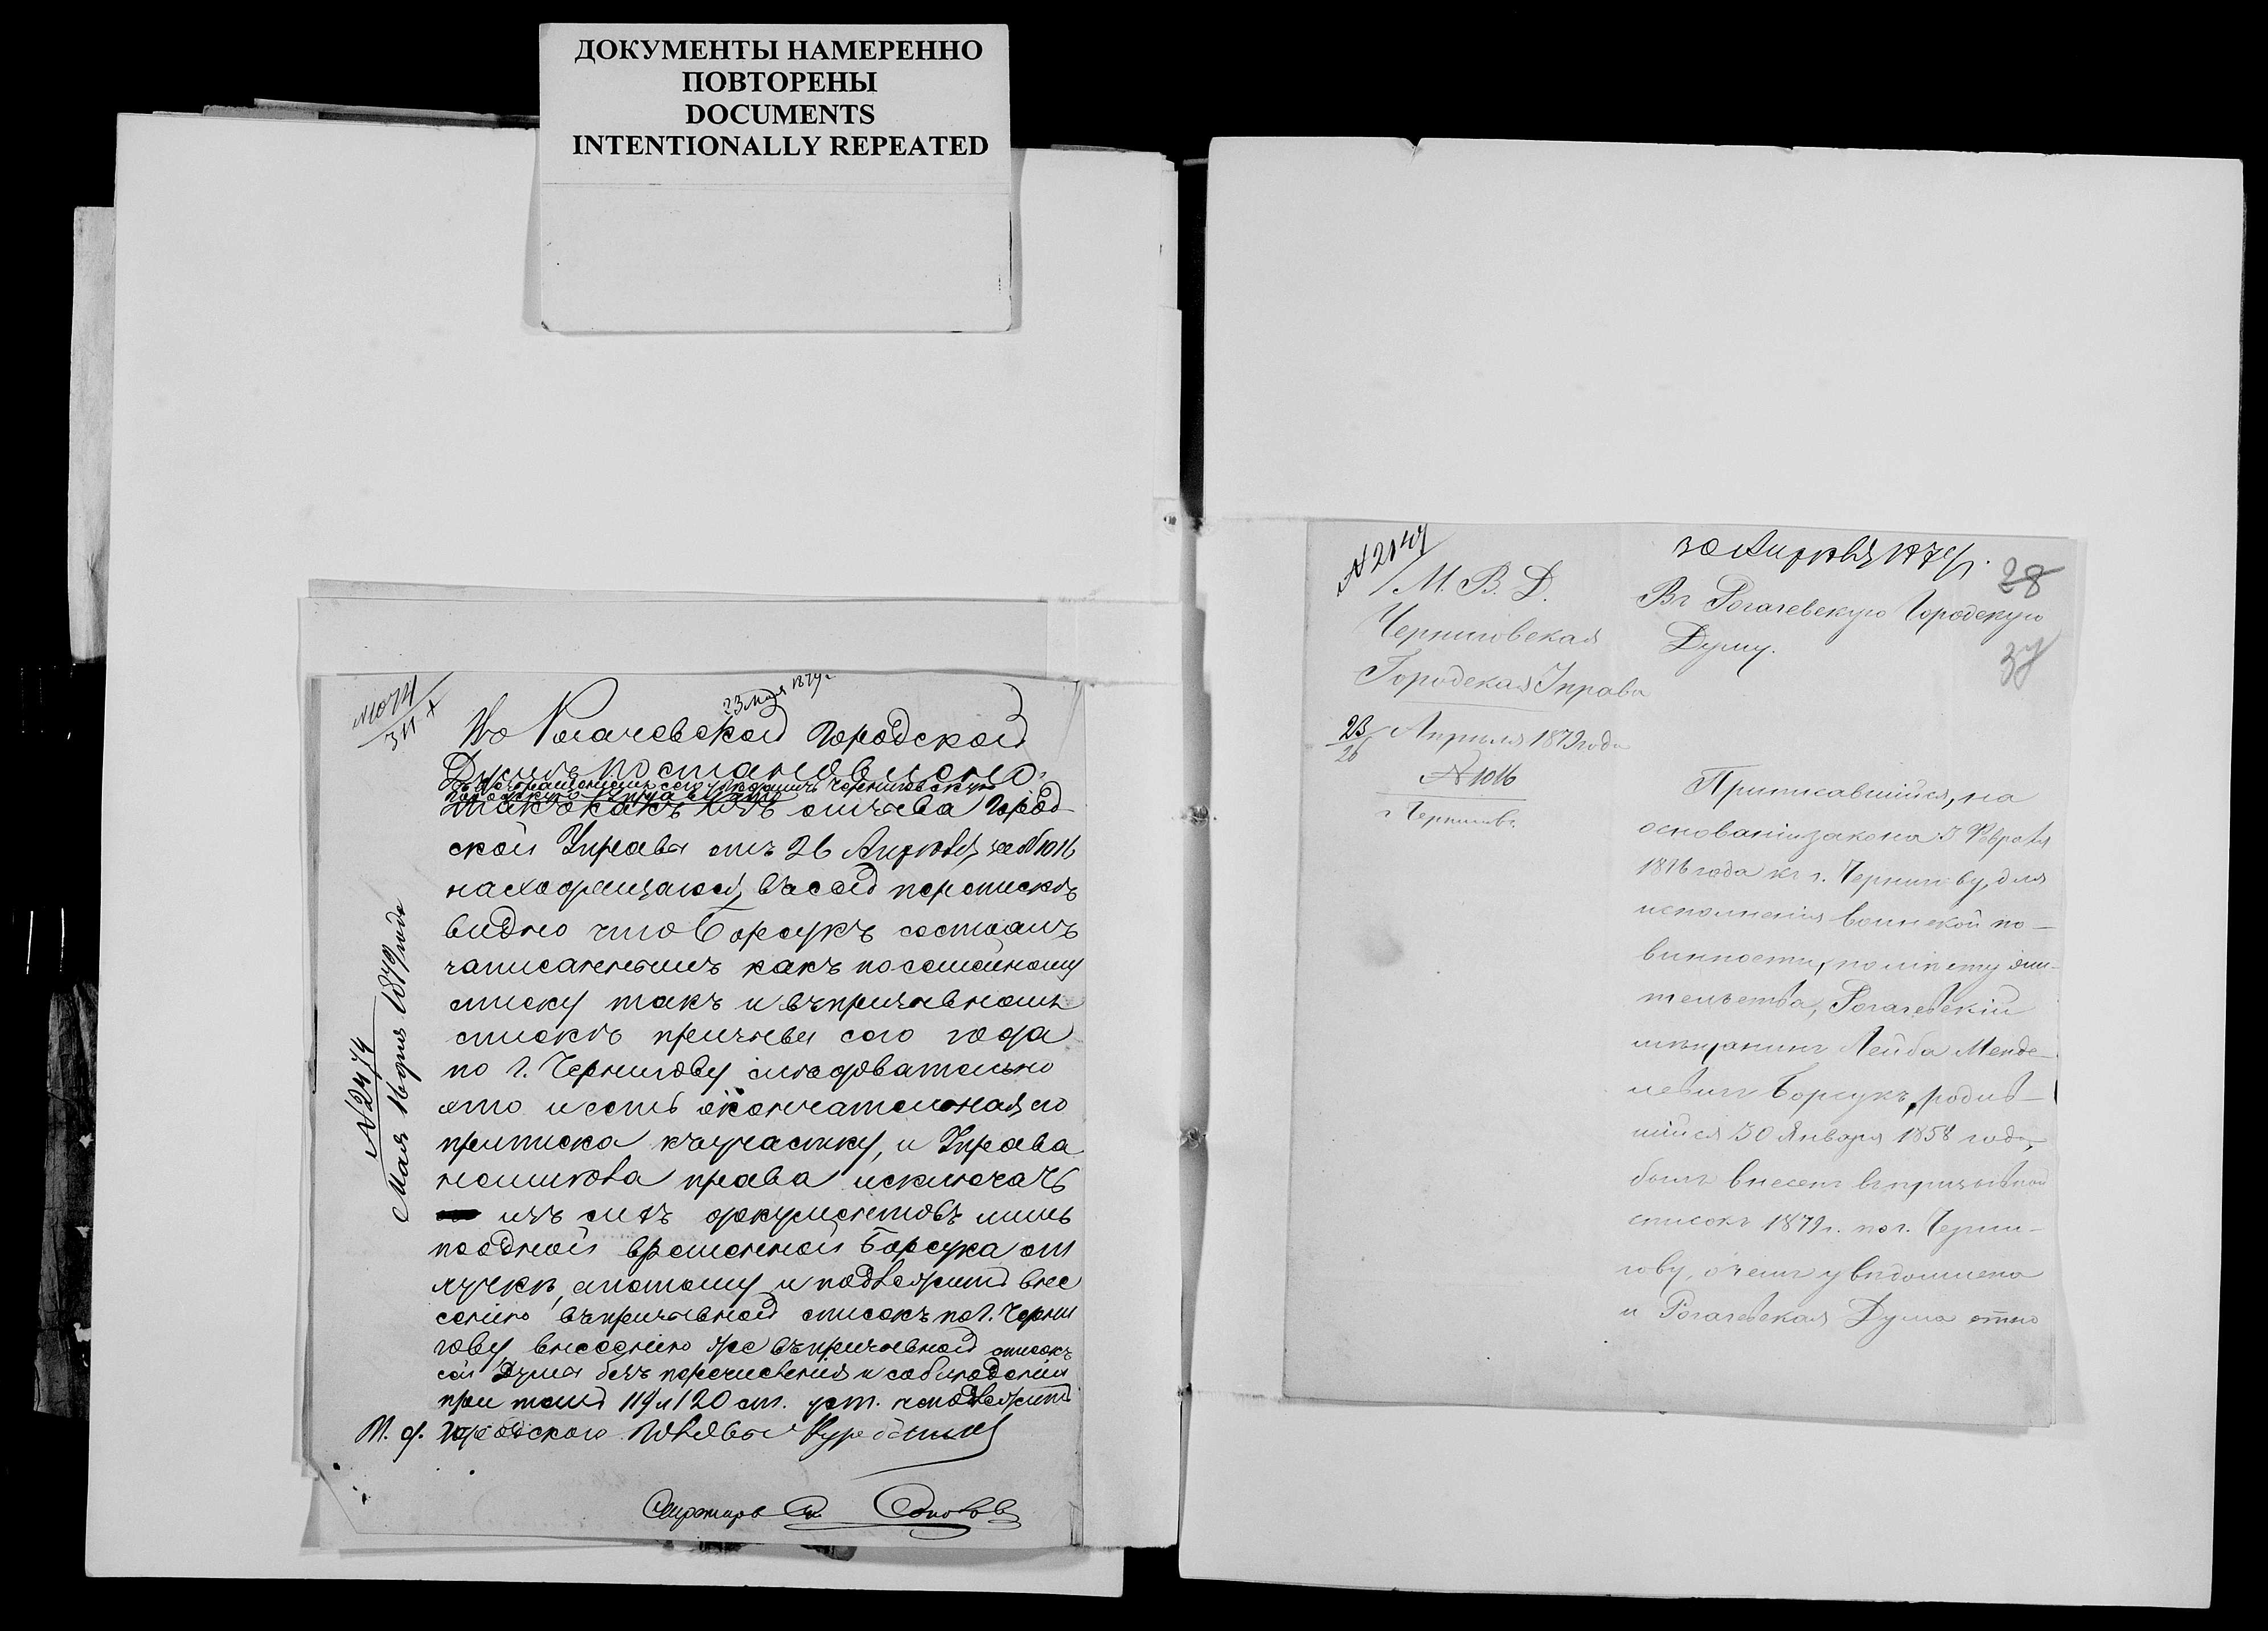 ДОКУМЕНТЫ НАМЕРЕННО
ПОВТОРЕНЫ
DOCUMENTS
INTENTIONALLY REPEATED
23 мая 1879 г
Въ Рогачевской Городской
Думѣ постановлено:
такъ какъ изъ отзыва Город
ской Управы отъ 26 Апрѣля за № 1016
находящагося въ сей перепискѣ
видно что Борсукъ состоитъ
записаннымъ какъ по семейному
списку такъ и въ призывномъ
спискѣ призыва сего года
по г. Чернигову слѣдовательно
это и есть окончательная его
приписка къ участку, и Управа
не имѣла права исключать
изъ сихъ документовъ лишь
по одной временной Борсука от
лучкѣ, а потому и подлежитъ внес
сенію въ призывной списокъ по г. Черни
гову внесенію же въ призывной списокъ
сей Думы безъ перечисленія и соблюденія
при томъ 119 и 120 ст. уст. неподлежитъ
И. д. Городского Головы
Секретарь
№ 2474
Мая 16 дня 1879 года
№ 2147
30 Апрѣля 1879 г.
28
37
М. В. Д.
Черниговская
Городская Управа
23/26 Апрѣля 1879 года
№ 1016
г. Черниговъ.
Въ Рогачевскую Городскую
Думу.
Приписавшійся, на
основаніи закона 3 Февраля
1876 года къ г. Чернигову, для
исполненія воинской по-
винности, по мѣсту жи-
тельства, Рогачевскій
мѣщанинъ Лейба Менде-
левичъ Борсукъ, родив-
шійся 30 Января 1858 года,
былъ внесенъ въ призывной
списокъ 1879 г. по г. Черни-
гову, о чемъ увѣдомлена
и Рогачевская Дума отно